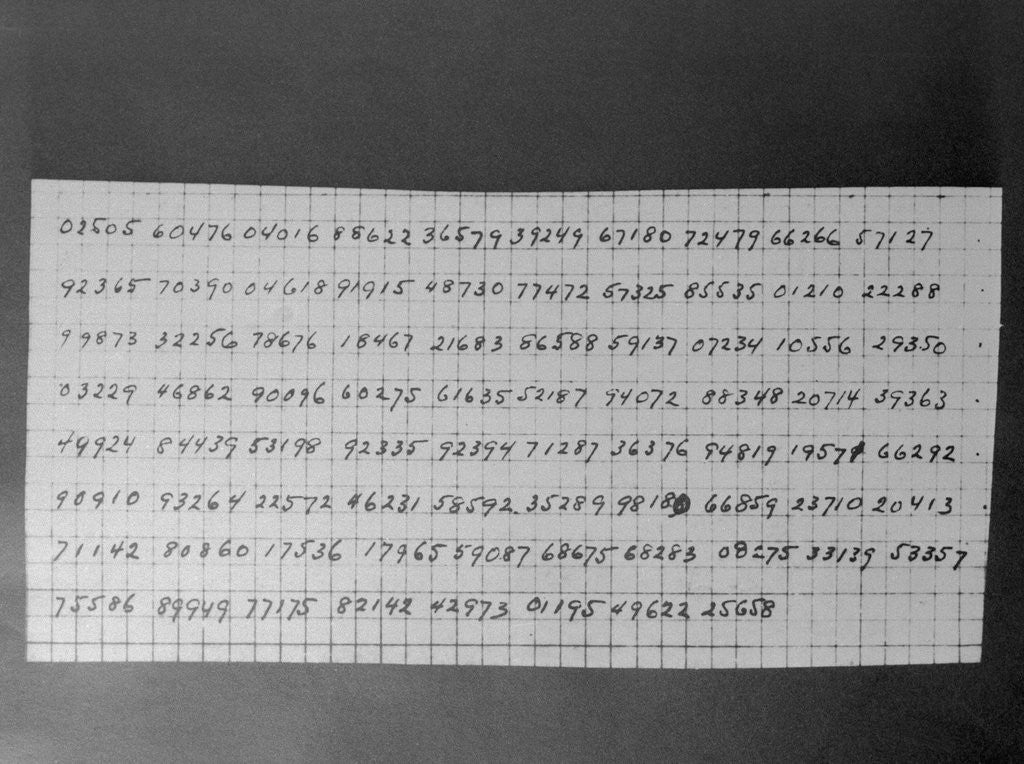 02505 60476 04016 88622 36579 39249 67180 72479 66266 57127
92365 70390 04618 91915 48730 77472 57325 85535 01210 22288
99873 32256 78676 18467 21683 86588 59137 07234 10556 29350
03229 46862 90096 60275 61635 52187 94072 88348 20714 39363
49924 84439 53198 92335 92394 71287 36376 94819 19571 66292
90910 93264 22572 46231 58592 35289 98180 66859 23710 20413
71142 80860 17536 17965 59087 68675 68283 08275 33139 53357
75586 89949 77175 82142 42973 01195 49622 25658